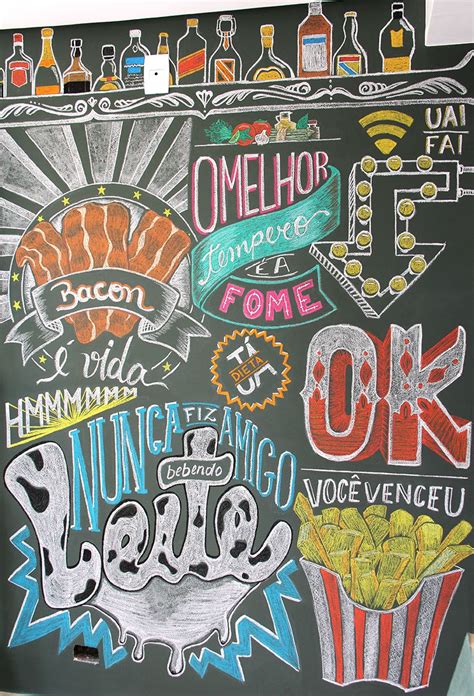 UAI
FAI
O MELHOR
tempero
É A
FOME
Bacon
é vida
TÁ
DIETA
JÁ
OK
HMMMMMMM
NUNCA FIZ AMIGO
bebendo
Leite
VOCÊ VENCEU